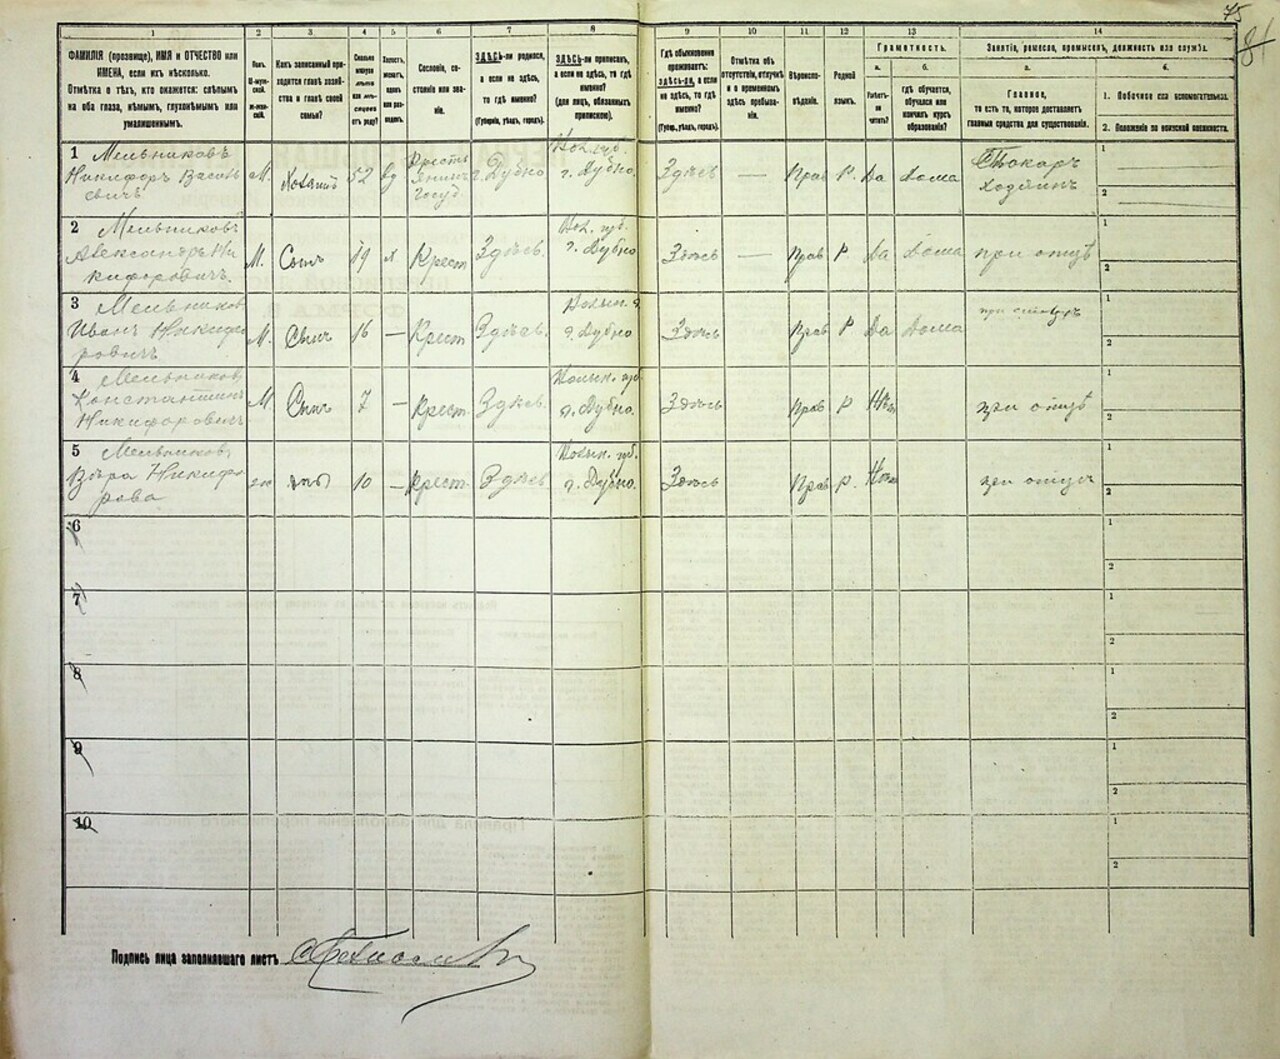 75
81
1 2 3 4 5 6 7 8 9 10 11 12 13 14
ФАМИЛІЯ (прозвище), ИМЯ и ОТЧЕСТВО или
ИМЕНА, если ихъ нѣсколько.
Отмѣтка о тѣхъ, кто окажется: слѣпымъ
на оба глаза, нѣмымъ, глухонѣмымъ или
умалишеннымъ.
Полъ.
М-муж-
ской.
ж-жен-
скій.
Какъ записанный при-
ходится главѣ хозяй-
ства и главѣ своей
семьи?
Сколько
минуло
лѣтъ
или мѣ-
сяцевъ
отъ роду?
Холостъ,
женатъ,
вдовъ
или раз-
веденъ.
Сословіе, со-
стояніе или зва-
ніе.
ЗДѢСЬ-ли родился,
а если не здѣсь,
то гдѣ именно?
(Губернія, уѣздъ, городъ).
ЗДѢСЬ-ли приписанъ,
а если не здѣсь, то гдѣ
именно?
(для лицъ, обязанныхъ
припискою).
Гдѣ обыкновенно
проживаетъ:
здѣсь-ли, а если
не здѣсь, то гдѣ
именно?
(Губер., уѣздъ, городъ).
Отмѣтка объ
отсутствіи, отлучкѣ
и о временномъ
здѣсь пребыва-
ніи.
Вѣроиспо-
вѣданіе.
Родной
языкъ.
Грамотность.
а.
Умѣетъ-
ли
читать?
б.
гдѣ обучается,
обучался или
кончилъ курсъ
образованія?
Занятіе, ремесло, промыселъ, должность или служба.
а.
Главное,
то есть то, которое доставляетъ
главныя средства для существованія.
б.
1. Побочное или вспомогательное.
2. Положеніе по воинской повинности.
1 Мельниковъ
Никифоръ Василь
евичъ
М. Хозяинъ 52 вд
Кресть
янинъ
Госуд
г. Дубно
Вол. губ.
г. Дубно.
Здѣсь — Прав Р. Да Дома
Токарь
Хозяинъ
1
2
2 Мельниковъ
Александръ Ни
кифоровичъ.
М. Сынъ 19 х Крест Здѣсь.
Вол. губ.
г. Дубно
Здѣсь — Прав Р. Да Дома при отцѣ
1
2
3 Мельников
Иванъ Никифо
ровичъ
М. Сынъ 16 — Крест Здѣсь.
г. Дубно
Здѣсь Прав Р Да Дома
1
2
4 Мельников
Константинъ
Никифоровичъ
М Сынъ 7 — Крест. Здѣсь.
Волын. губ
г. Дубно.
Здѣсь Прав Р Нѣт при отцѣ
1
2
5 Мельников
Вѣра Никифо
рова
ж 10 — Крест. Здѣсь
Волын. губ.
г. Дубно.
Здѣсь Прав Р. Нѣт при отцѣ
1
2
6
1
2
7
1
2
8
1
2
9
1
2
10
1
2
Подпись лица заполнявшаго листъ